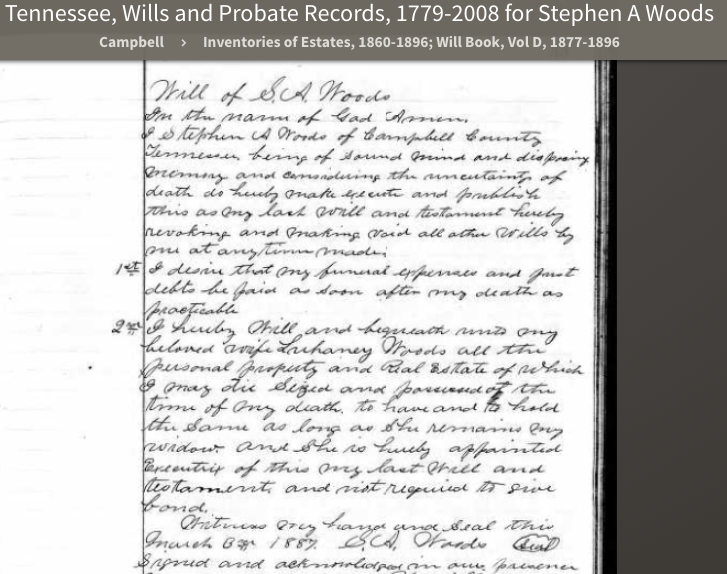 Tennessee, Wills and Probate Records, 1779-2008 for Stephen A Woods
Campbell > Inventories of Estates, 1860-1896; Will Book, Vol D, 1877-1896
Will of S. A. Woods
In the name of God Amen.
I Stephen A Woods of Campbell County
Tennessee being of sound mind and disposing
memory and considering the uncertainty of
death do hereby make execute and publish
this as my last Will and testament hereby
revoking and making void all other Wills by
me at any time made;
1st I desire that my funeral expenses and just
debts be paid as soon after my death as
practicable
2nd I hereby Will and bequeath unto my
beloved wife Luhaney Woods all the
personal property and Real Estate of which
I may die Seized and possessed of the
time of my death, to have and to hold
the Same as long as She remains my
widow. and She is hereby appointed
Executrix of this my last Will and
testament, and not required to give
bond.
Witness my hand and Seal this
March 3rd 1887. S. A. Woods Seal
Signed and acknowledged in our presence